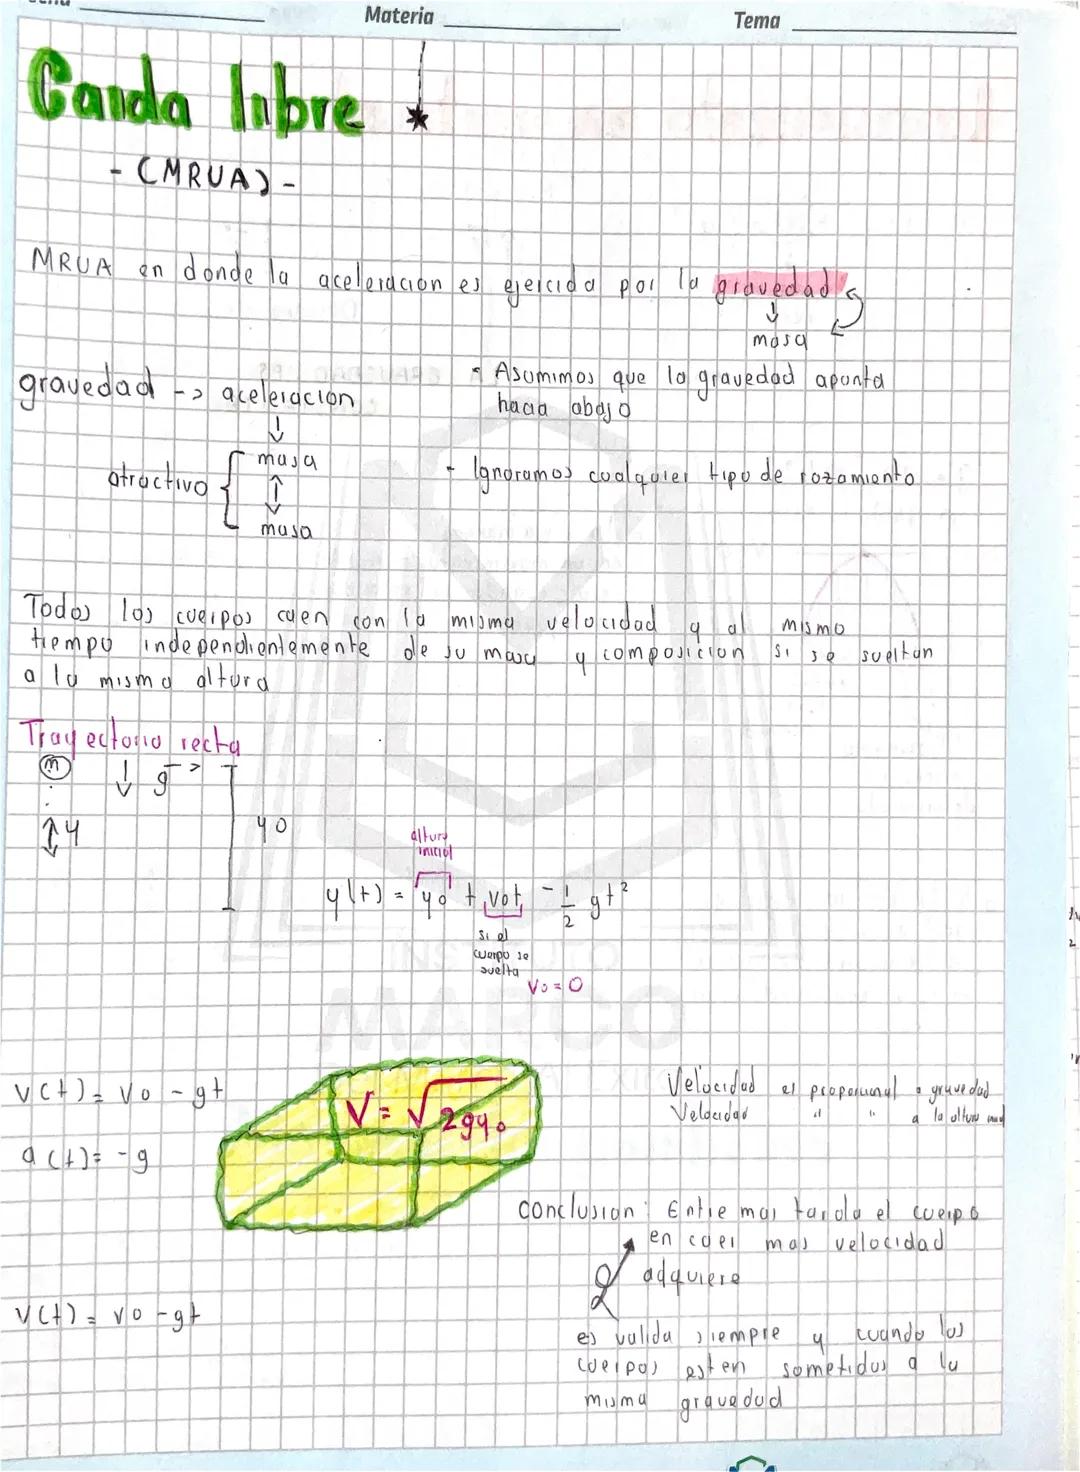 Materia
Tema
Caida libre
- (MRUA) -
MRUA en donde la aceleracion es ejercida por la gravedad
masa
gravedad -> aceleracion
masa
atractivo
masa
- Asumimos que la gravedad apunta
hacia abajo
- Ignoramos cualquier tipo de rozamiento
Todos los cuerpos caen con la misma velocidad y al mismo
tiempo independientemente de su masa y composicion si se sueltan
a la misma altura
Trayectoria recta
m
g
y
yo
altura
inicial
y(t) = yo + vot - 1/2 gt²
si el
cuerpo se
suelta
Vo = 0
v(t) = vo - gt
a(t) = -g
V = √2gyo
Velocidad es proporcional a gravedad
Velocidad " " a la altura
conclusion: Entre mas tarda el cuerpo
en caer mas velocidad
adquiere
v(t) = vo - gt
es valida siempre y cuando los
cuerpos esten sometidos a la
misma gravedad
INSTITUTO
MARCO